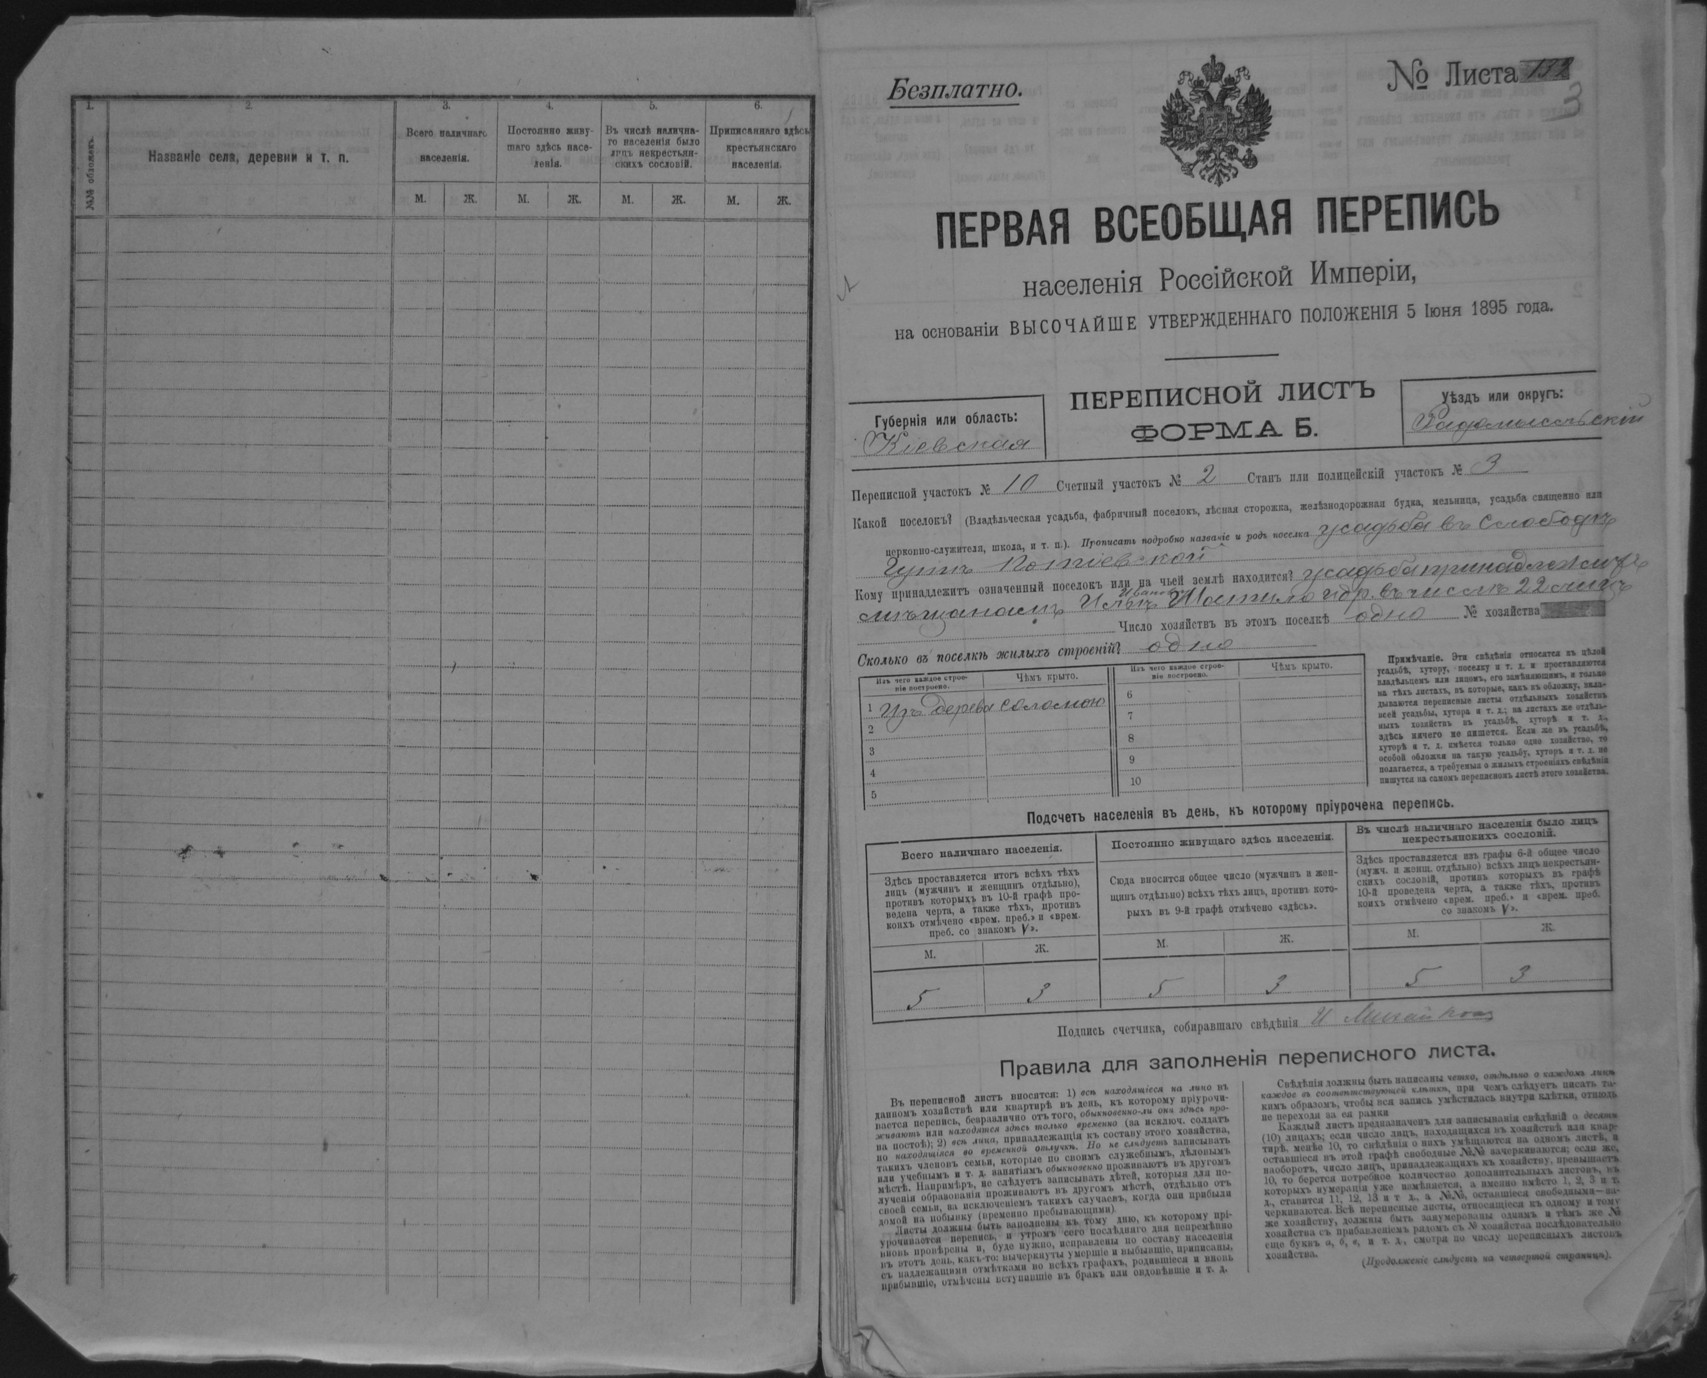 1. 2. 3. 4. 5. 6.
№№ обложекъ.
Названіе села, деревни и т. п.
Всего наличнаго населенія.
Постоянно живу-
щаго здѣсь насе-
ленія.
Въ числѣ налична-
го населенія было
лицъ некрестьян-
скихъ сословій.
Приписаннаго здѣсь
крестьянскаго
населенія.
М. Ж. М. Ж. М. Ж. М. Ж.
Безплатно.
№ Листа 132
3
ПЕРВАЯ ВСЕОБЩАЯ ПЕРЕПИСЬ
населенія Россійской Имперіи,
на основаніи ВЫСОЧАЙШЕ УТВЕРЖДЕННАГО ПОЛОЖЕНІЯ 5 Іюня 1895 года.
Губернія или область:
Кіевская
ПЕРЕПИСНОЙ ЛИСТЪ
ФОРМА Б.
Уѣздъ или округъ:
Радомысльскій
Переписной участокъ № 10 Счетный участокъ № 2 Станъ или полицейскій участокъ № 3
Какой поселокъ? (Владѣльческая усадьба, фабричный поселокъ, лѣсная сторожка, желѣзнодорожная будка, мельница, усадьба священно или
церковно-служителя, школа, и т. п.). Прописать подробно названіе и родъ поселка усадьба въ Слободѣ
Гутѣ
Кому принадлежитъ означенный поселокъ или на чьей землѣ находится? усадьба принадлежитъ
мѣщанамъ въ числѣ 22 лицъ
Число хозяйствъ въ этомъ поселкѣ одно № хозяйства
Сколько въ поселкѣ жилыхъ строеній? одно
Изъ чего каждое строе-
ніе построено.
Чѣмъ крыто.
Изъ чего каждое строе-
ніе построено.
Чѣмъ крыто.
1 Изъ дерева соломою
2
3
4
5
6
7
8
9
10
Примѣчаніе. Эти свѣдѣнія относятся къ цѣлой
усадьбѣ, хутору, поселку и т. д. и проставляются
владѣльцемъ или лицомъ, его замѣняющимъ, и только
на тѣхъ листахъ, въ которые, какъ въ обложку, вкла-
дываются переписные листы отдѣльныхъ хозяйствъ
всей усадьбы, хутора и т. д.; на листахъ же отдѣль-
ныхъ хозяйствъ въ усадьбѣ, хуторѣ и т. д.,
здѣсь ничего не пишется. Если же въ усадьбѣ,
хуторѣ и т. д. имѣется только одно хозяйство, то
особой обложки на такую усадьбу, хуторъ и т. д. не
полагается, а требуемыя о жилыхъ строеніяхъ свѣдѣнія
пишутся на самомъ переписномъ листѣ этого хозяйства.
Подсчетъ населенія въ день, къ которому пріурочена перепись.
Всего наличнаго населенія.
Здѣсь проставляется итогъ всѣхъ тѣхъ
лицъ (мужчинъ и женщинъ отдѣльно),
противъ которыхъ въ 10-й графѣ про-
ведена черта, а также тѣхъ, противъ
коихъ отмѣчено «врем. преб.» и «врем.
преб. со знакомъ V».
Постоянно живущаго здѣсь населенія.
Сюда вносится общее число (мужчинъ и жен-
щинъ отдѣльно) всѣхъ тѣхъ лицъ, противъ кото-
рыхъ въ 9-й графѣ отмѣчено «здѣсь».
Въ числѣ наличнаго населенія было лицъ
некрестьянскихъ сословій.
Здѣсь проставляется изъ графы 6-й общее число
(мужч. и женщ. отдѣльно) всѣхъ лицъ некрестьян-
скихъ сословій, противъ которыхъ въ графѣ
10-й проведена черта, а также тѣхъ, противъ
коихъ отмѣчено «врем. преб.» и «врем. преб.
со знакомъ V».
М. Ж. М. Ж. М. Ж.
5 3 5 3 5 3
Подпись счетчика, собиравшаго свѣдѣнія И
Правила для заполненія переписного листа.
Въ переписной листъ вносятся: 1) всѣ находящіеся на лицо въ
данномъ хозяйствѣ или квартирѣ въ день, къ которому пріурочи-
вается перепись, безразлично отъ того, обыкновенно-ли они здѣсь про-
живаютъ или находятся здѣсь только временно (за исключ. солдатъ
на постоѣ); 2) всѣ лица, принадлежащія къ составу этого хозяйства,
но находящіяся во временной отлучкѣ. Но не слѣдуетъ записывать
такихъ членовъ семьи, которые по своимъ служебнымъ, дѣловымъ
или учебнымъ и т. д. занятіямъ обыкновенно проживаютъ въ другомъ
мѣстѣ. Напримѣръ, не слѣдуетъ записывать дѣтей, которыя для по-
лученія образованія проживаютъ въ другомъ мѣстѣ, отдѣльно отъ
своей семьи, за исключеніемъ такихъ случаевъ, когда они прибыли
домой на побывку (временно пребывающими).
Листы должны быть заполнены къ тому дню, къ которому прі-
урочивается перепись, и утромъ сего послѣдняго дня непремѣнно
вновь провѣрены и, буде нужно, исправлены по составу населенія
въ этотъ день, какъ-то: вычеркнуты умершіе и выбывшіе, приписаны,
съ надлежащими отмѣтками во всѣхъ графахъ, родившіеся и вновь
прибывшіе, отмѣчены вступившіе въ бракъ или овдовѣвшіе и т. д.
Свѣдѣнія должны быть написаны четко, отдѣльно о каждомъ лицѣ
каждое въ соотвѣтствующей клѣткѣ, при чемъ слѣдуетъ писать та-
кимъ образомъ, чтобы вся запись умѣстилась внутри клѣтки, отнюдь
не переходя за ея рамки
Каждый листъ предназначенъ для записыванія свѣдѣній о десяти
(10) лицахъ; если число лицъ, находящихся въ хозяйствѣ или квар-
тирѣ, менѣе 10, то свѣдѣнія о нихъ умѣщаются на одномъ листѣ, а
оставшіеся въ этой графѣ свободные №№ зачеркиваются; если же,
наоборотъ, число лицъ, принадлежащихъ къ хозяйству, превышаетъ
10, то берется потребное количество дополнительныхъ листовъ, въ
которыхъ нумерація уже измѣняется, а именно вмѣсто 1, 2, 3 и т.
д., ставится 11, 12, 13 и т д., а №№, оставшіеся свободными—за-
черкиваются. Всѣ переписные листы, относящіеся къ одному и тому
же хозяйству, должны быть занумерованы однимъ и тѣмъ же №
хозяйства съ прибавленіемъ рядомъ съ № хозяйства послѣдовательно
еще буквъ а, б, в, и т. д., смотря по числу переписныхъ листовъ
хозяйства.
(Продолженіе слѣдуетъ на четвертой страницѣ).